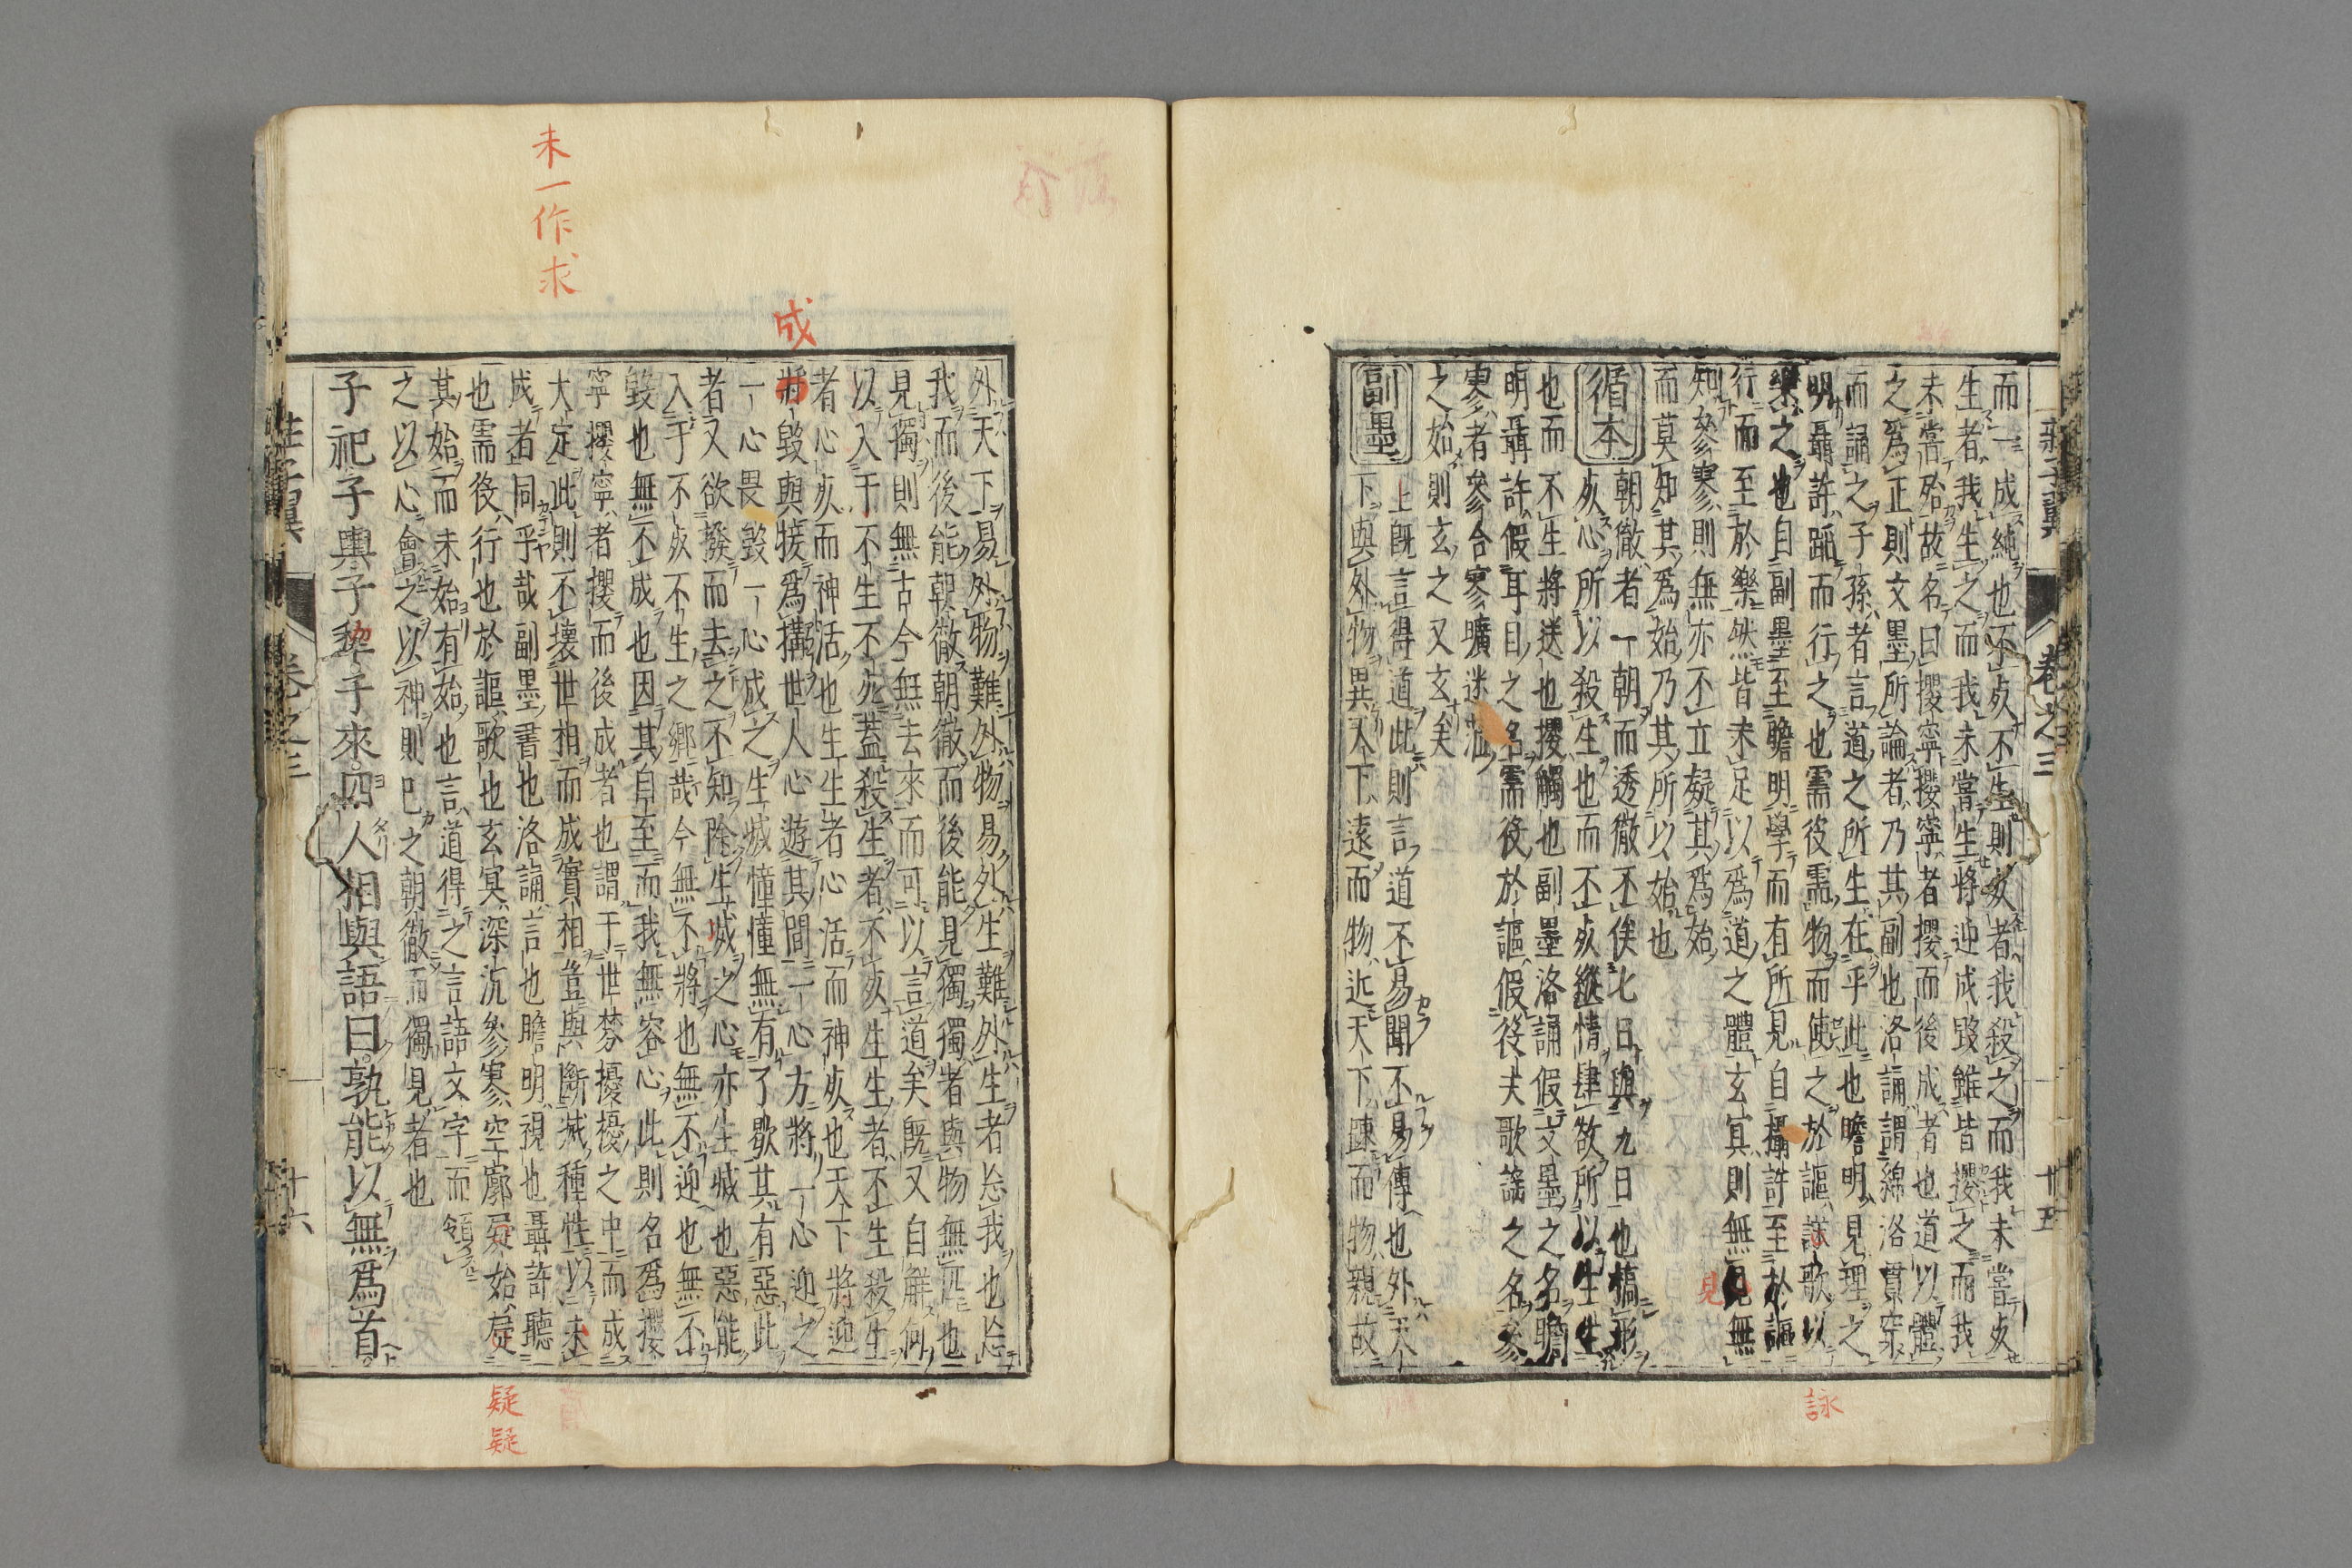 而一成純也不死不生則死者我殺之而我未嘗死
生者我生之而我未嘗生將迎成毀雖皆攖之而我
未嘗殆故名曰攖寧攖寧者攖而後成者也道以體
之爲正則文墨所論者乃其副也洛誦謂綿洛貫穿
而誦之子孫者言道之所生在乎此也瞻明見理之
明聶許躡而行之也需役需物而使之於謳謠歌以
樂之也自副墨至瞻明學而有所見自攝許至於謳
行而至於樂然皆未足以爲道之體玄冥則無見無
知參寥則無亦不立疑其爲始
而莫知其爲始乃其所以始也
循本
朝徹者一朝而透徹不俟七日與九日也槁形
死心所以殺生也而不死繼情肆欲所以生生
也而不生將送也攖觸也副墨洛誦假文墨之名瞻
明聶許假耳目之名需役於謳假役夫歌謠之名參
寥者參合寥曠迷茫
之始則玄之又玄矣
副墨
上既言得道此則言道不易聞不易傳也外天
下與外物異天下遠而物近天下踈而物親故
莊子翼 卷之三 廿五
外天下易外物難外物易外生難外生者忘我也忘
我而後能朝徹朝徹而後能見獨獨者與物無匹也
見獨則無古今無去來而可以言道矣既又自解何
以入于不生不死蓋殺生者不死生生者不生殺生
者心死而神活也生生者心活而神死也天下將迎
將毀與接爲搆世人心遊其間一心方將一心迎之
一心畏毀一心成之生滅憧憧無有了歇其有惡此
者又欲撥而去之不知除生滅之心亦生滅也惡能
入于不死不生之鄉哉今無不將也無不迎也無不
毀也無不成也因其自至而我無容心此則名爲攖
寧攖寧者攖而後成者也謂于世棼擾擾之中而成
大定此則不壞世相而成實相豈與斷滅種性以未
成者同乎哉副墨書也洛誦言也瞻明視也聶許聽
也需役行也於謳歌也玄冥深沉參寥空廓疑始疑
其始而未始有始也言道得之言語文字而領
之以心會之以神則已之朝徹而獨見者也
子祀子輿子犂子來四人相與語曰孰能以無爲首
莊子翼 卷之三 十六
未一作求
成
疑
疑
見
詠